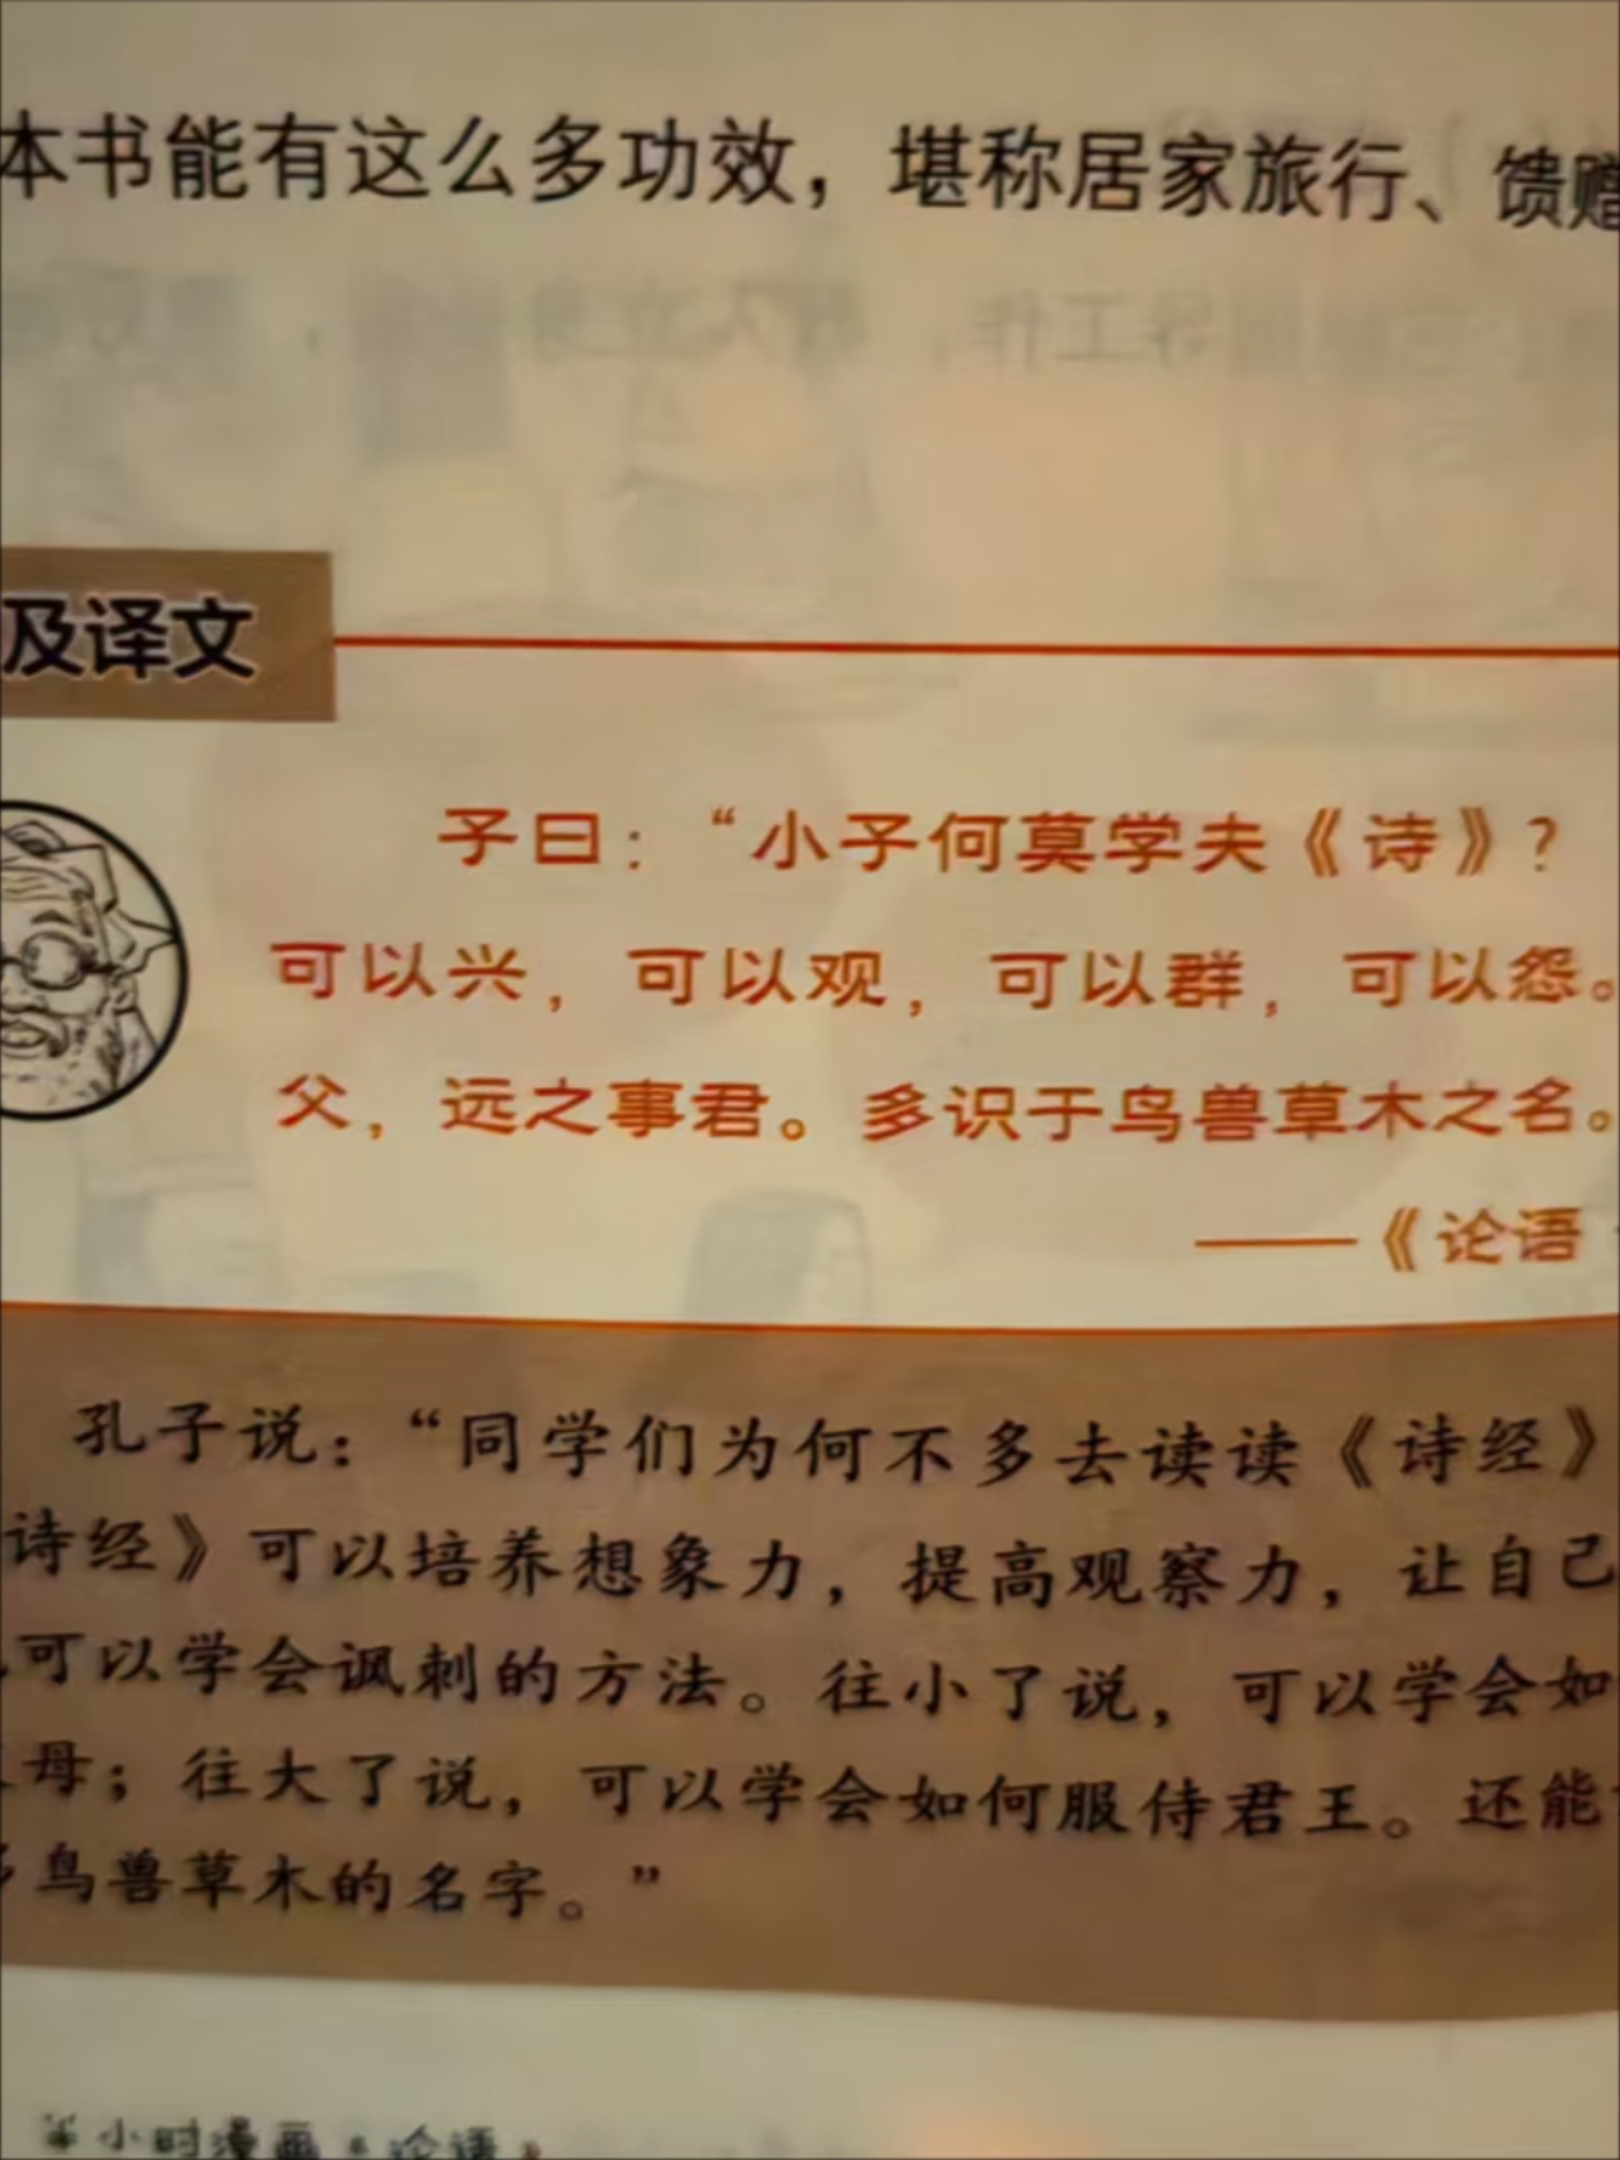 本书能有这么多功效，堪称居家旅行、馈赠
及译文
子曰：“小子何莫学夫《诗》？
可以兴，可以观，可以群，可以怨。
父，远之事君。多识于鸟兽草木之名。
——《论语
孔子说：“同学们为何不多去读读《诗经》
诗经》可以培养想象力，提高观察力，让自己
可以学会讽刺的方法。往小了说，可以学会如
母；往大了说，可以学会如何服侍君王。还能
鸟兽草木的名字。”
小时漫画《论语》